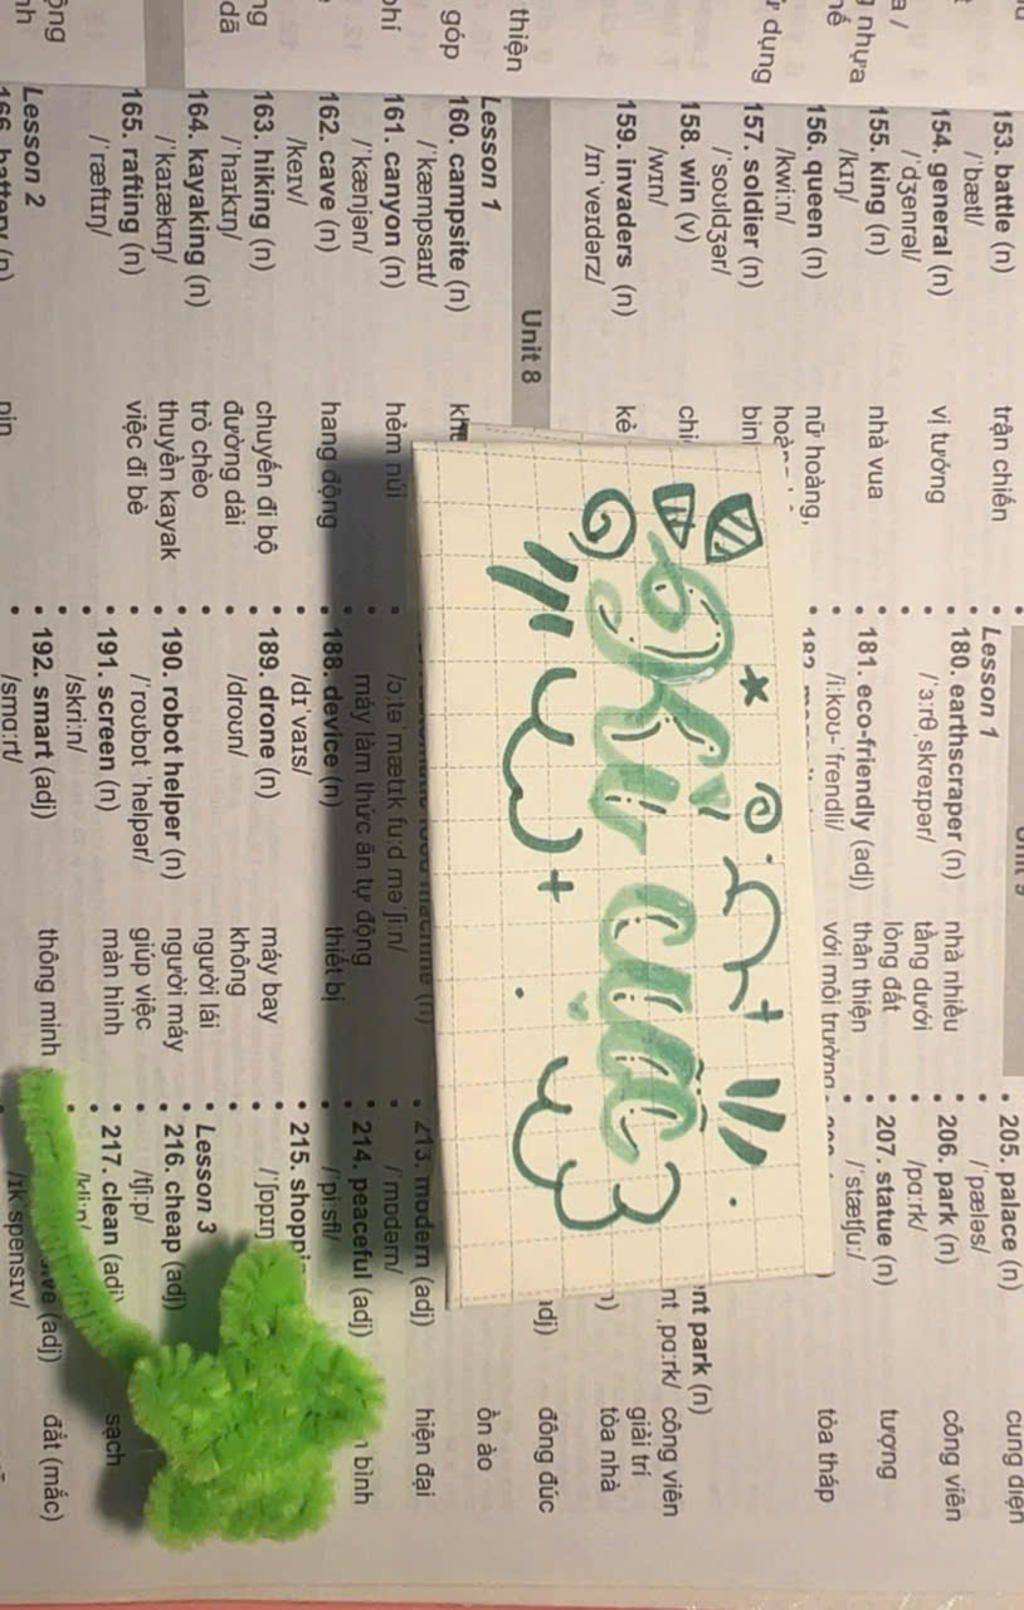 nhựa
dụng
thiện
góp
153. battle (n) trận chiến
/ˈbætl/
154. general (n) vị tướng
/ˈdʒenrəl/
155. king (n) nhà vua
/kɪŋ/
156. queen (n) nữ hoàng,
/kwiːn/
157. soldier (n)
/ˈsoʊldʒər/
158. win (v)
/wɪn/
159. invaders (n) kẻ
/ɪnˈveɪdərz/
Unit 8
Lesson 1
160. campsite (n)
/ˈkæmpsaɪt/
161. canyon (n) hẻm núi
/ˈkænjən/
162. cave (n) hang động
/keɪv/
163. hiking (n) chuyến đi bộ
/ˈhaɪkɪŋ/ đường dài
164. kayaking (n) trò chèo
/ˈkaɪækɪŋ/ thuyền kayak
165. rafting (n) việc đi bè
/ˈræftɪŋ/
Lesson 2
166. battery (n) pin
Lesson 1
180. earthscraper (n) nhà nhiều
/ˈɜːrθˌskreɪpər/ tầng dưới
lòng đất
181. eco-friendly (adj) thân thiện
/iːkoʊ-ˈfrendli/ với môi trường
cực
máy làm thức ăn tự động
188. device (n) thiết bị
/dɪˈvaɪs/
189. drone (n) máy bay
/droʊn/ không
người lái
190. robot helper (n) người máy
/ˈroʊbɒt ˈhelpər/ giúp việc
191. screen (n) màn hình
/skriːn/
192. smart (adj) thông minh
/smɑːrt/
205. palace (n) cung điện
/ˈpæləs/
206. park (n) công viên
/pɑːrk/
207. statue (n) tượng
/ˈstætʃuː/
tòa tháp
park (n)
ˌpɑːrk/ công viên
giải trí
tòa nhà
đông đúc
ồn ào
213. modern (adj) hiện đại
/ˈmɒdərn/
214. peaceful (adj) bình
/ˈpiːsfl/
215.
Lesson 3
216. cheap (adj)
/tʃiːp/
217. clean (adj) sạch
/kliːn/
(adj) đắt (mắc)
/ɪkˈspensɪv/